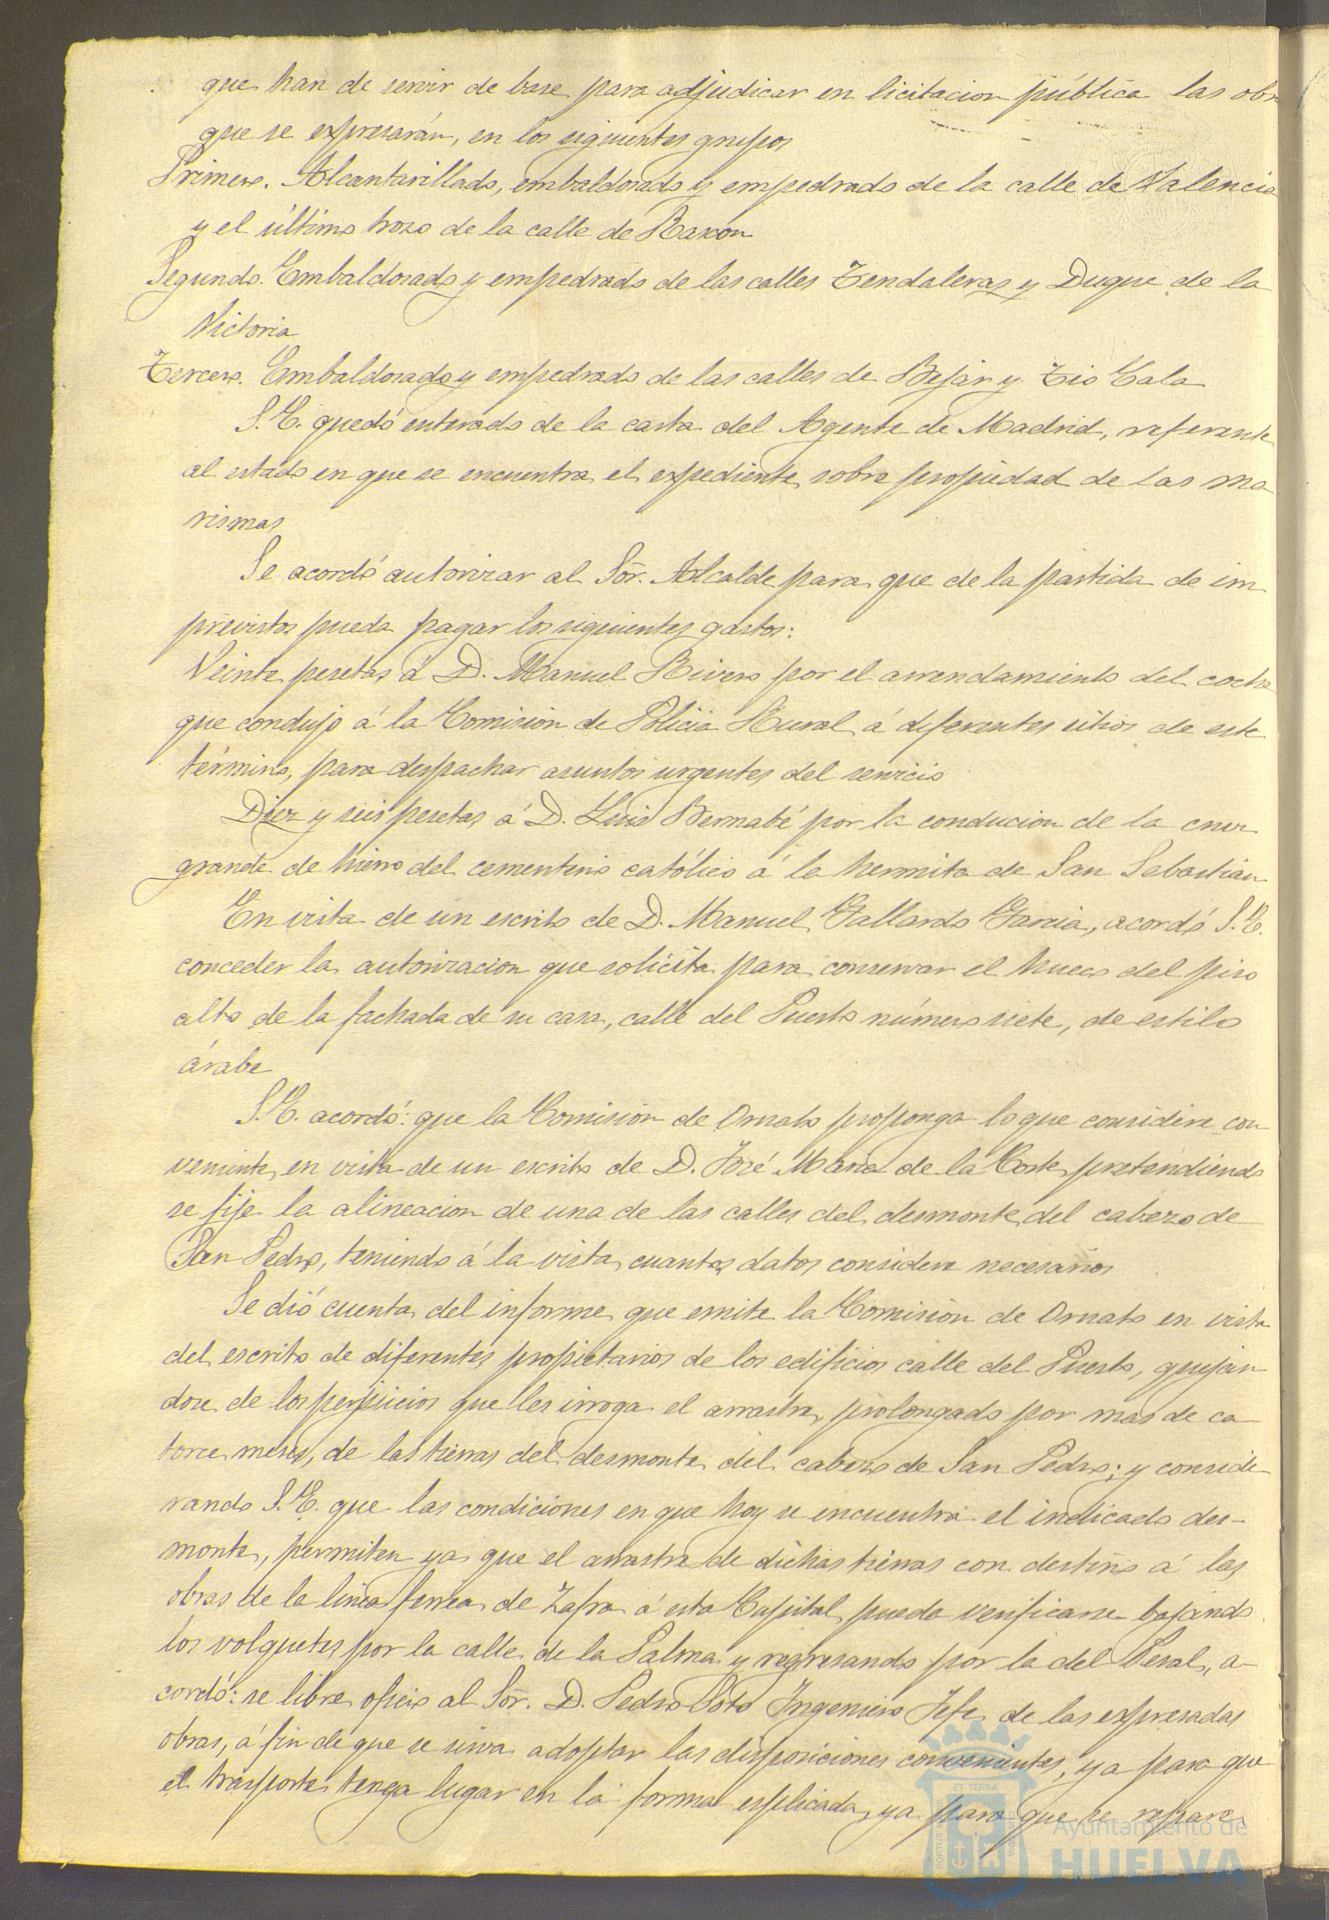 que han de servir de base para adjudicar en licitacion pública las obr
que se expresarán, en los siguientes grupos
Primero. Alcantarillado, embaldosado y empedrado de la calle de Valencia
y el último trozo de la calle de Rascon
Segundo. Embaldosado y empedrado de las calles Tendaleras y Duque de la
Victoria
Tercero. Embaldosado y empedrado de las calles de Bejar y Tio Cala
S.E. quedó enterado de la carta del Agente de Madrid, referente
al estado en que se encuentra el expediente sobre propiedad de las ma
rismas
Se acordó autorizar al Sōr. Alcalde para que de la partida de im
previstos pueda pagar los siguientes gastos:
Veinte pesetas á D. Manuel Rivero por el arrendamiento del coche
que condujo á la Comisión de Policia Rural á diferentes sitios de este
término, para despachar asuntos urgentes del servicio
Diez y seis pesetas á D. Luis Bernabé por la conducion de la cruz
grande de hierro del cementerio católico á la hermita de San Sebastián
En vista de un escrito de D. Manuel Gallardo Garcia, acordó S.E.
conceder la autorizacion que solicita para conservar el hueco del piso
alto de la fachada de su casa, calle del Puerto número siete, de estilo
árabe
S.E. acordó: que la Comisión de Ornato proponga lo que considere con
veniente, en vista de un escrito de D. José Maria de la Corte, pretendiendo
se fije la alineacion de una de las calles del desmonte del cabezo de
San Pedro, teniendo á la vista cuantos datos considere necesarios
Se dió cuenta del informe que emite la Comisión de Ornato en vista
del escrito de diferentes propietarios de los edificios calle del Puerto, queján
dose de los perjuicios que les irroga el arrastre, prolongado por mas de ca-
torce meses, de las tierras del desmonte del cabezo de San Pedro; y conside-
rando S.E. que las condiciones en que hoy se encuentra el indicado des-
monte, permiten ya que el arrastre de dichas tierras con destino á las
obras de la linea ferrea de Zafra á esta Capital, pueda verificarse bajando
los volquetes por la calle de la Palma y regresando por la del Peral, a-
cordó: se libre oficio al Sōr. D. Pedro Soto Ingeniero Jefe de las expresadas
obras, á fin de que se sirva adoptar las disposiciones convenientes, ya para que
el trasporte tenga lugar en la forma esplicada, ya para que se repare
Ayuntamiento de
HUELVA